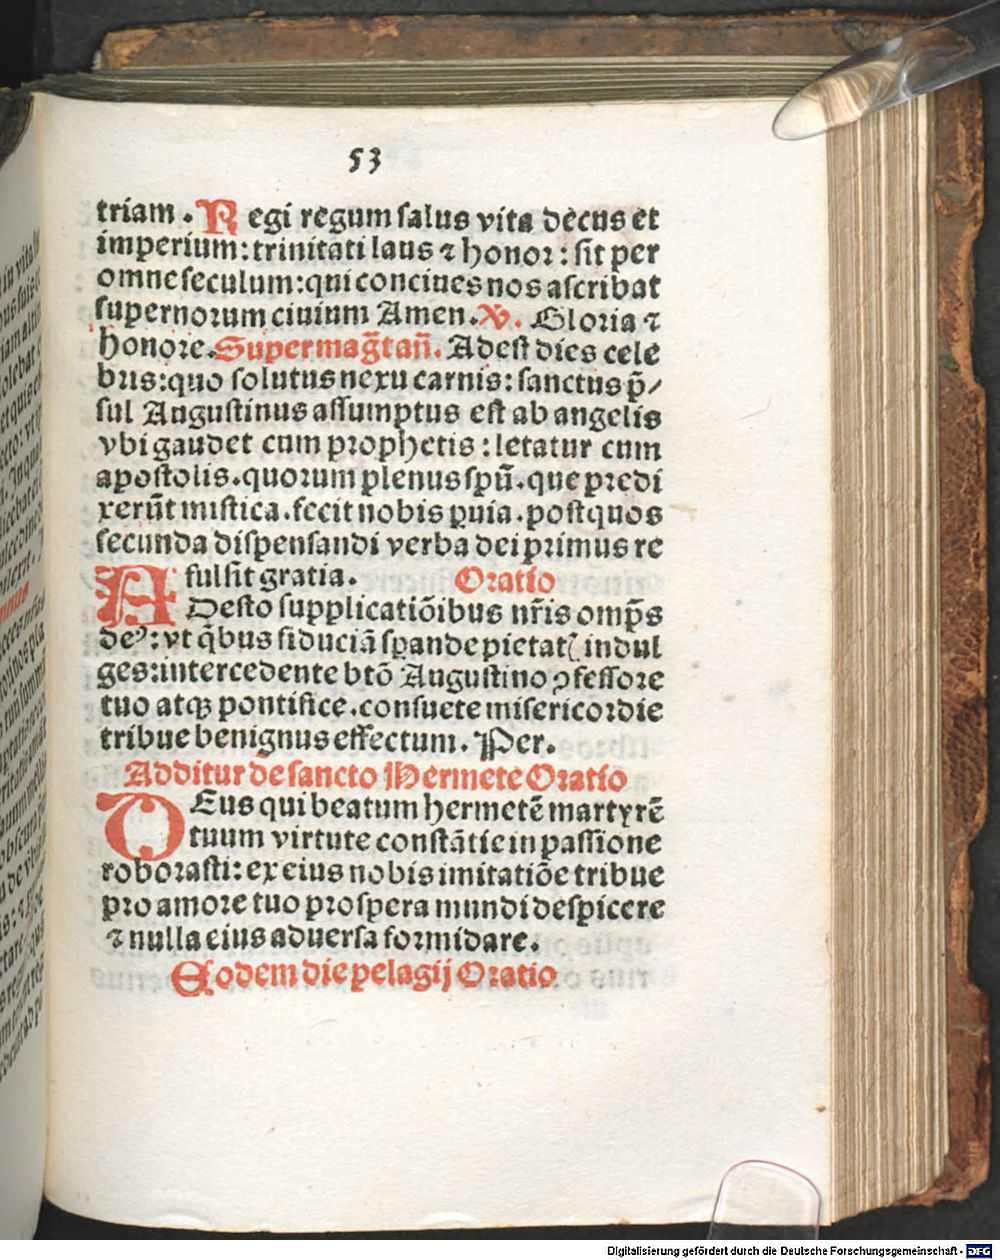 53
triam . Regi regum salus vita decus et
imperium: trinitati laus ⁊ honor : sit per
omne seculum: qui concines nos ascribat
supernorum ciuium Amen. V. Gloria ⁊
honore. Super mag̃tañ. Adest dies cele
bris: quo solutus nexu carnis: sanctus p̃/
sul Augustinus assumptus est ab angelis
vbi gaudet cum prophetis : letatur cum
apostolis. quorum plenus spũ. que predi
xerũt mistica. fecit nobis peruia. post quos
secunda dispensandi verba dei primus re
fulsit gratia. Oratio
ADesto supplicatiõibus nr̃is omp̃s
deꝰ: vt q̃bus fiduciã sꝑande pietatꝭ indul
ges: intercedente btõ Augustino ꝯfessore
tuo atqꝫ pontifice. consuete misericordie
tribue benignus effectum. Per.
Additur de sancto Hermete Oratio
DEus qui beatum hermetẽ martyrẽ
tuum virtute constãtie in passione
roborasti: ex eius nobis imitatiõe tribue
pro amore tuo prospera mundi despicere
⁊ nulla eius aduersa formidare.
Eodem die pelagij Oratio
Digitalisierung gefördert durch die Deutsche Forschungsgemeinschaft - DFG